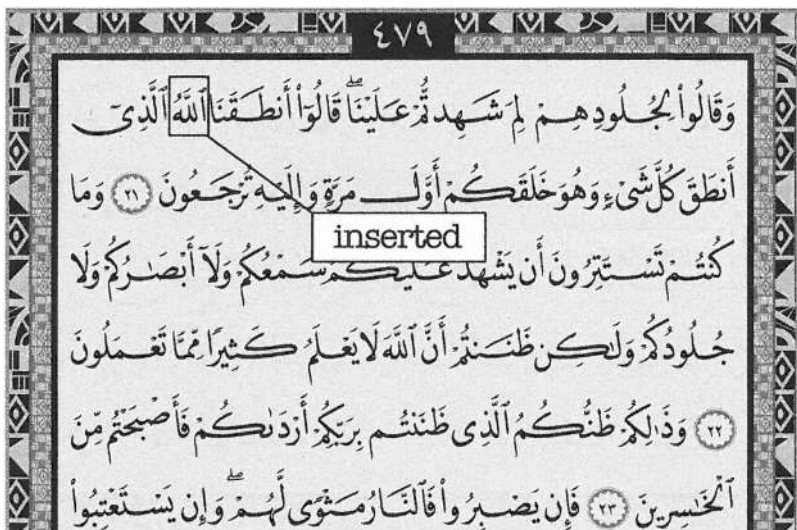 ٤٧٩
وَقَالُوا۟ لِجُلُودِهِمْ لِمَ شَهِدتُّمْ عَلَيْنَا ۖ قَالُوٓا۟ أَنطَقَنَا ٱللَّهُ ٱلَّذِىٓ
أَنطَقَ كُلَّ شَىْءٍ وَهُوَ خَلَقَكُمْ أَوَّلَ مَرَّةٍ وَإِلَيْهِ تُرْجَعُونَ ٢١ وَمَا
inserted
كُنتُمْ تَسْتَتِرُونَ أَن يَشْهَدَ عَلَيْكُمْ سَمْعُكُمْ وَلَآ أَبْصَـٰرُكُمْ وَلَا
جُلُودُكُمْ وَلَـٰكِن ظَنَنتُمْ أَنَّ ٱللَّهَ لَا يَعْلَمُ كَثِيرًا مِّمَّا تَعْمَلُونَ
٢٢ وَذَٰلِكُمْ ظَنُّكُمُ ٱلَّذِى ظَنَنتُم بِرَبِّكُمْ أَرْدَىٰكُمْ فَأَصْبَحْتُم مِّنَ
ٱلْخَـٰسِرِينَ ٢٣ فَإِن يَصْبِرُوا۟ فَٱلنَّارُ مَثْوًى لَّهُمْ ۖ وَإِن يَسْتَعْتِبُوا۟